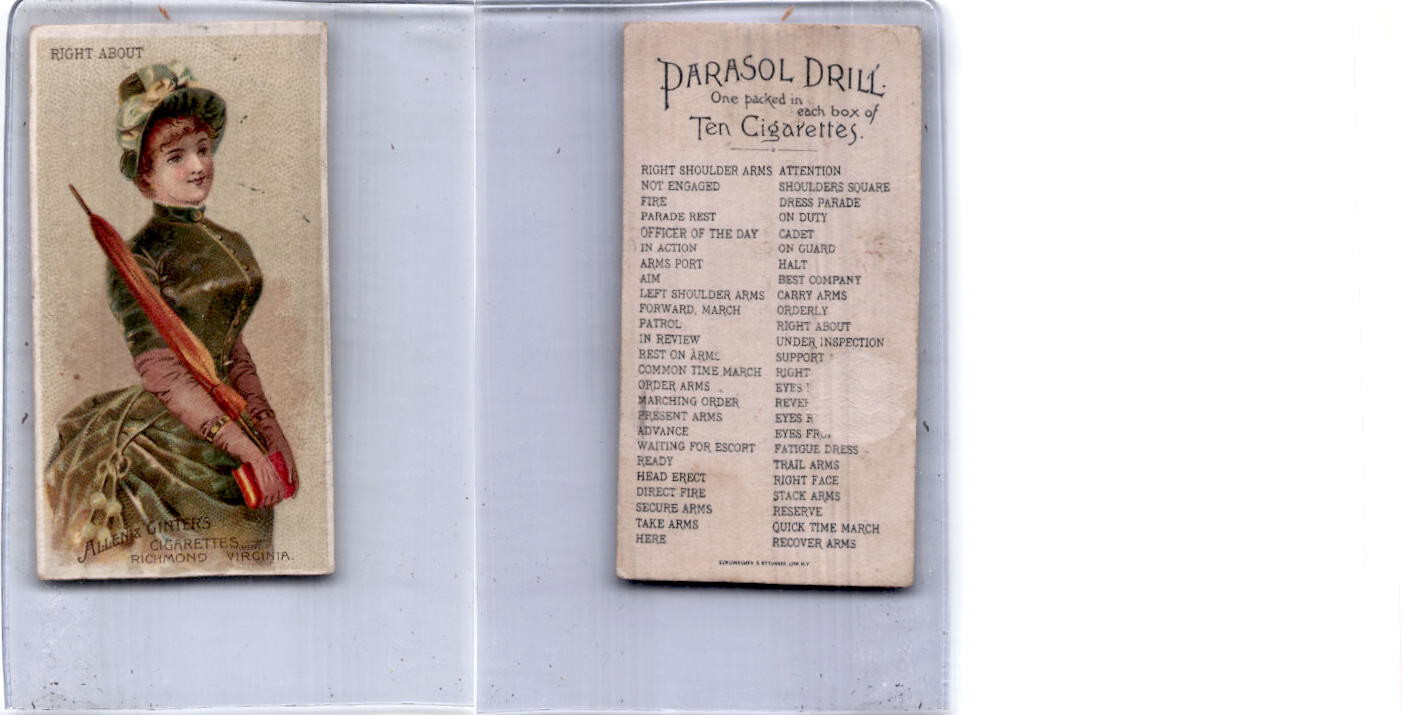 RIGHT ABOUT
ALLEN & GINTER'S
CIGARETTES
RICHMOND VIRGINIA.
PARASOL DRILL.
One packed in
each box of
Ten Cigarettes.
RIGHT SHOULDER ARMS ATTENTION
NOT ENGAGED SHOULDERS SQUARE
FIRE DRESS PARADE
PARADE REST ON DUTY
OFFICER OF THE DAY CADET
IN ACTION ON GUARD
ARMS PORT HALT
AIM BEST COMPANY
LEFT SHOULDER ARMS CARRY ARMS
FORWARD, MARCH ORDERLY
PATROL RIGHT ABOUT
IN REVIEW UNDER INSPECTION
REST ON ARMS SUPPORT
COMMON TIME MARCH RIGHT
ORDER ARMS EYES
MARCHING ORDER
PRESENT ARMS EYES
ADVANCE EYES
WAITING FOR ESCORT FATIGUE DRESS
READY TRAIL ARMS
HEAD ERECT RIGHT FACE
DIRECT FIRE STACK ARMS
SECURE ARMS RESERVE
TAKE ARMS QUICK TIME MARCH
HERE RECOVER ARMS